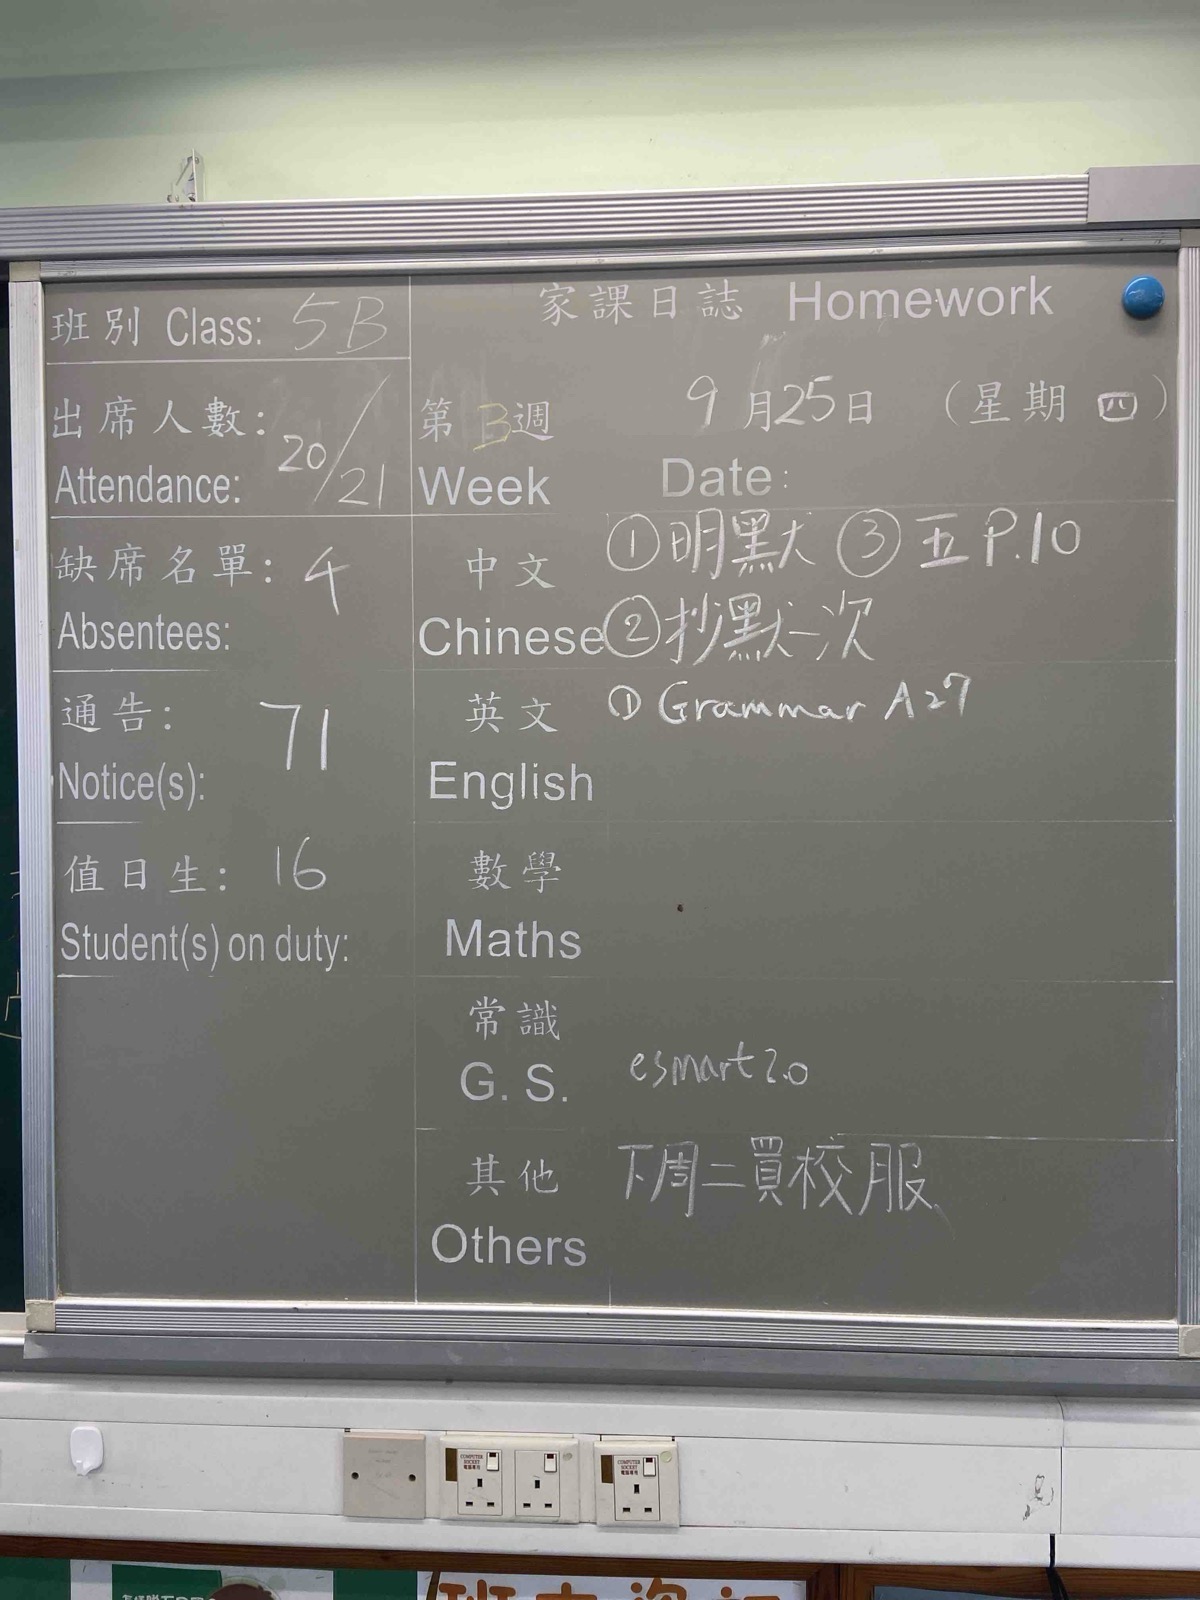 班別 Class: 5B
出席人數: 20/21
Attendance:
缺席名單: 4
Absentees:
通告: 71
Notice(s):
值日生: 16
Student(s) on duty:
家課日誌 Homework
第 3 週 9 月 25 日 (星期 四)
Week Date:
中文 ①明默 ③五 P.10
Chinese ②抄默一次
英文 ① Grammar A27
English
數學
Maths
常識
G. S. esmart 2.0
其他 下周二買校服
Others
COMPUTER SOCKET
電腦專用
COMPUTER SOCKET
電腦專用